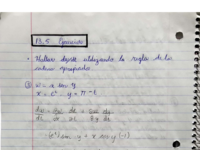 13.5 Ejercicios
• Hallar dw/dt utilizando la regla de la cadena apropiada.
① w = x sen y
x = e^t, y = π - t
dw/dt = ∂w/∂x dx/dt + ∂w/∂y dy/dt
(e^t) sen y + x cos y (-1)